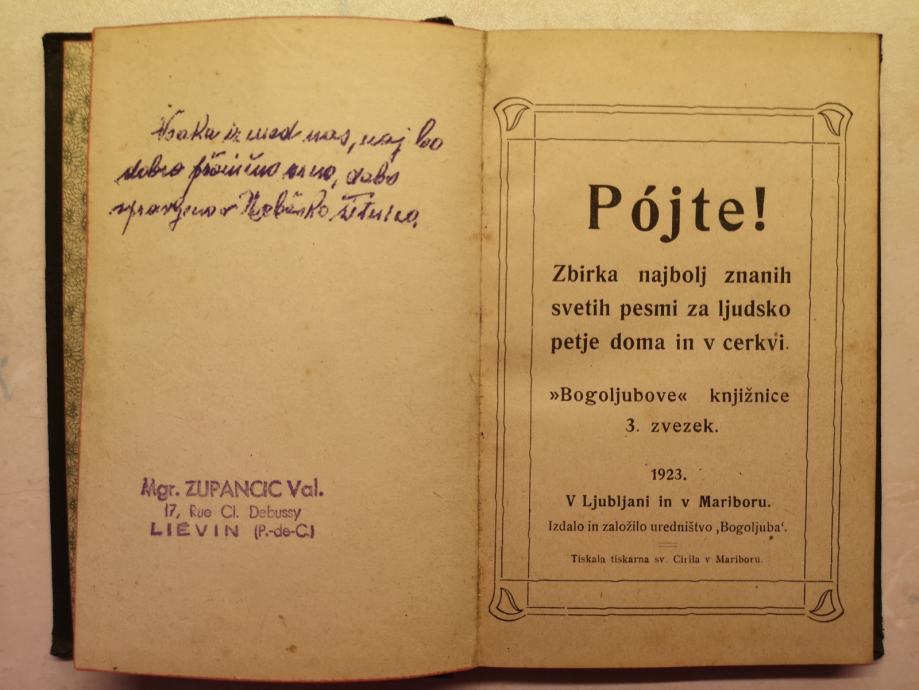 Vsaki izmed nas, naj bo
dobro pšenično zrno, da bo
spravljeno v Nebeško žitnico.
Mgr. ZUPANCIC Val.
17, Rue Cl. Debussy
LIEVIN (P.-de-C.)
Pójte!
Zbirka najbolj znanih
svetih pesmi za ljudsko
petje doma in v cerkvi.
»Bogoljubove« knjižnice
3. zvezek.
1923.
V Ljubljani in v Mariboru.
Izdalo in založilo uredništvo ‚Bogoljuba‘.
Tiskala tiskarna sv. Cirila v Mariboru.